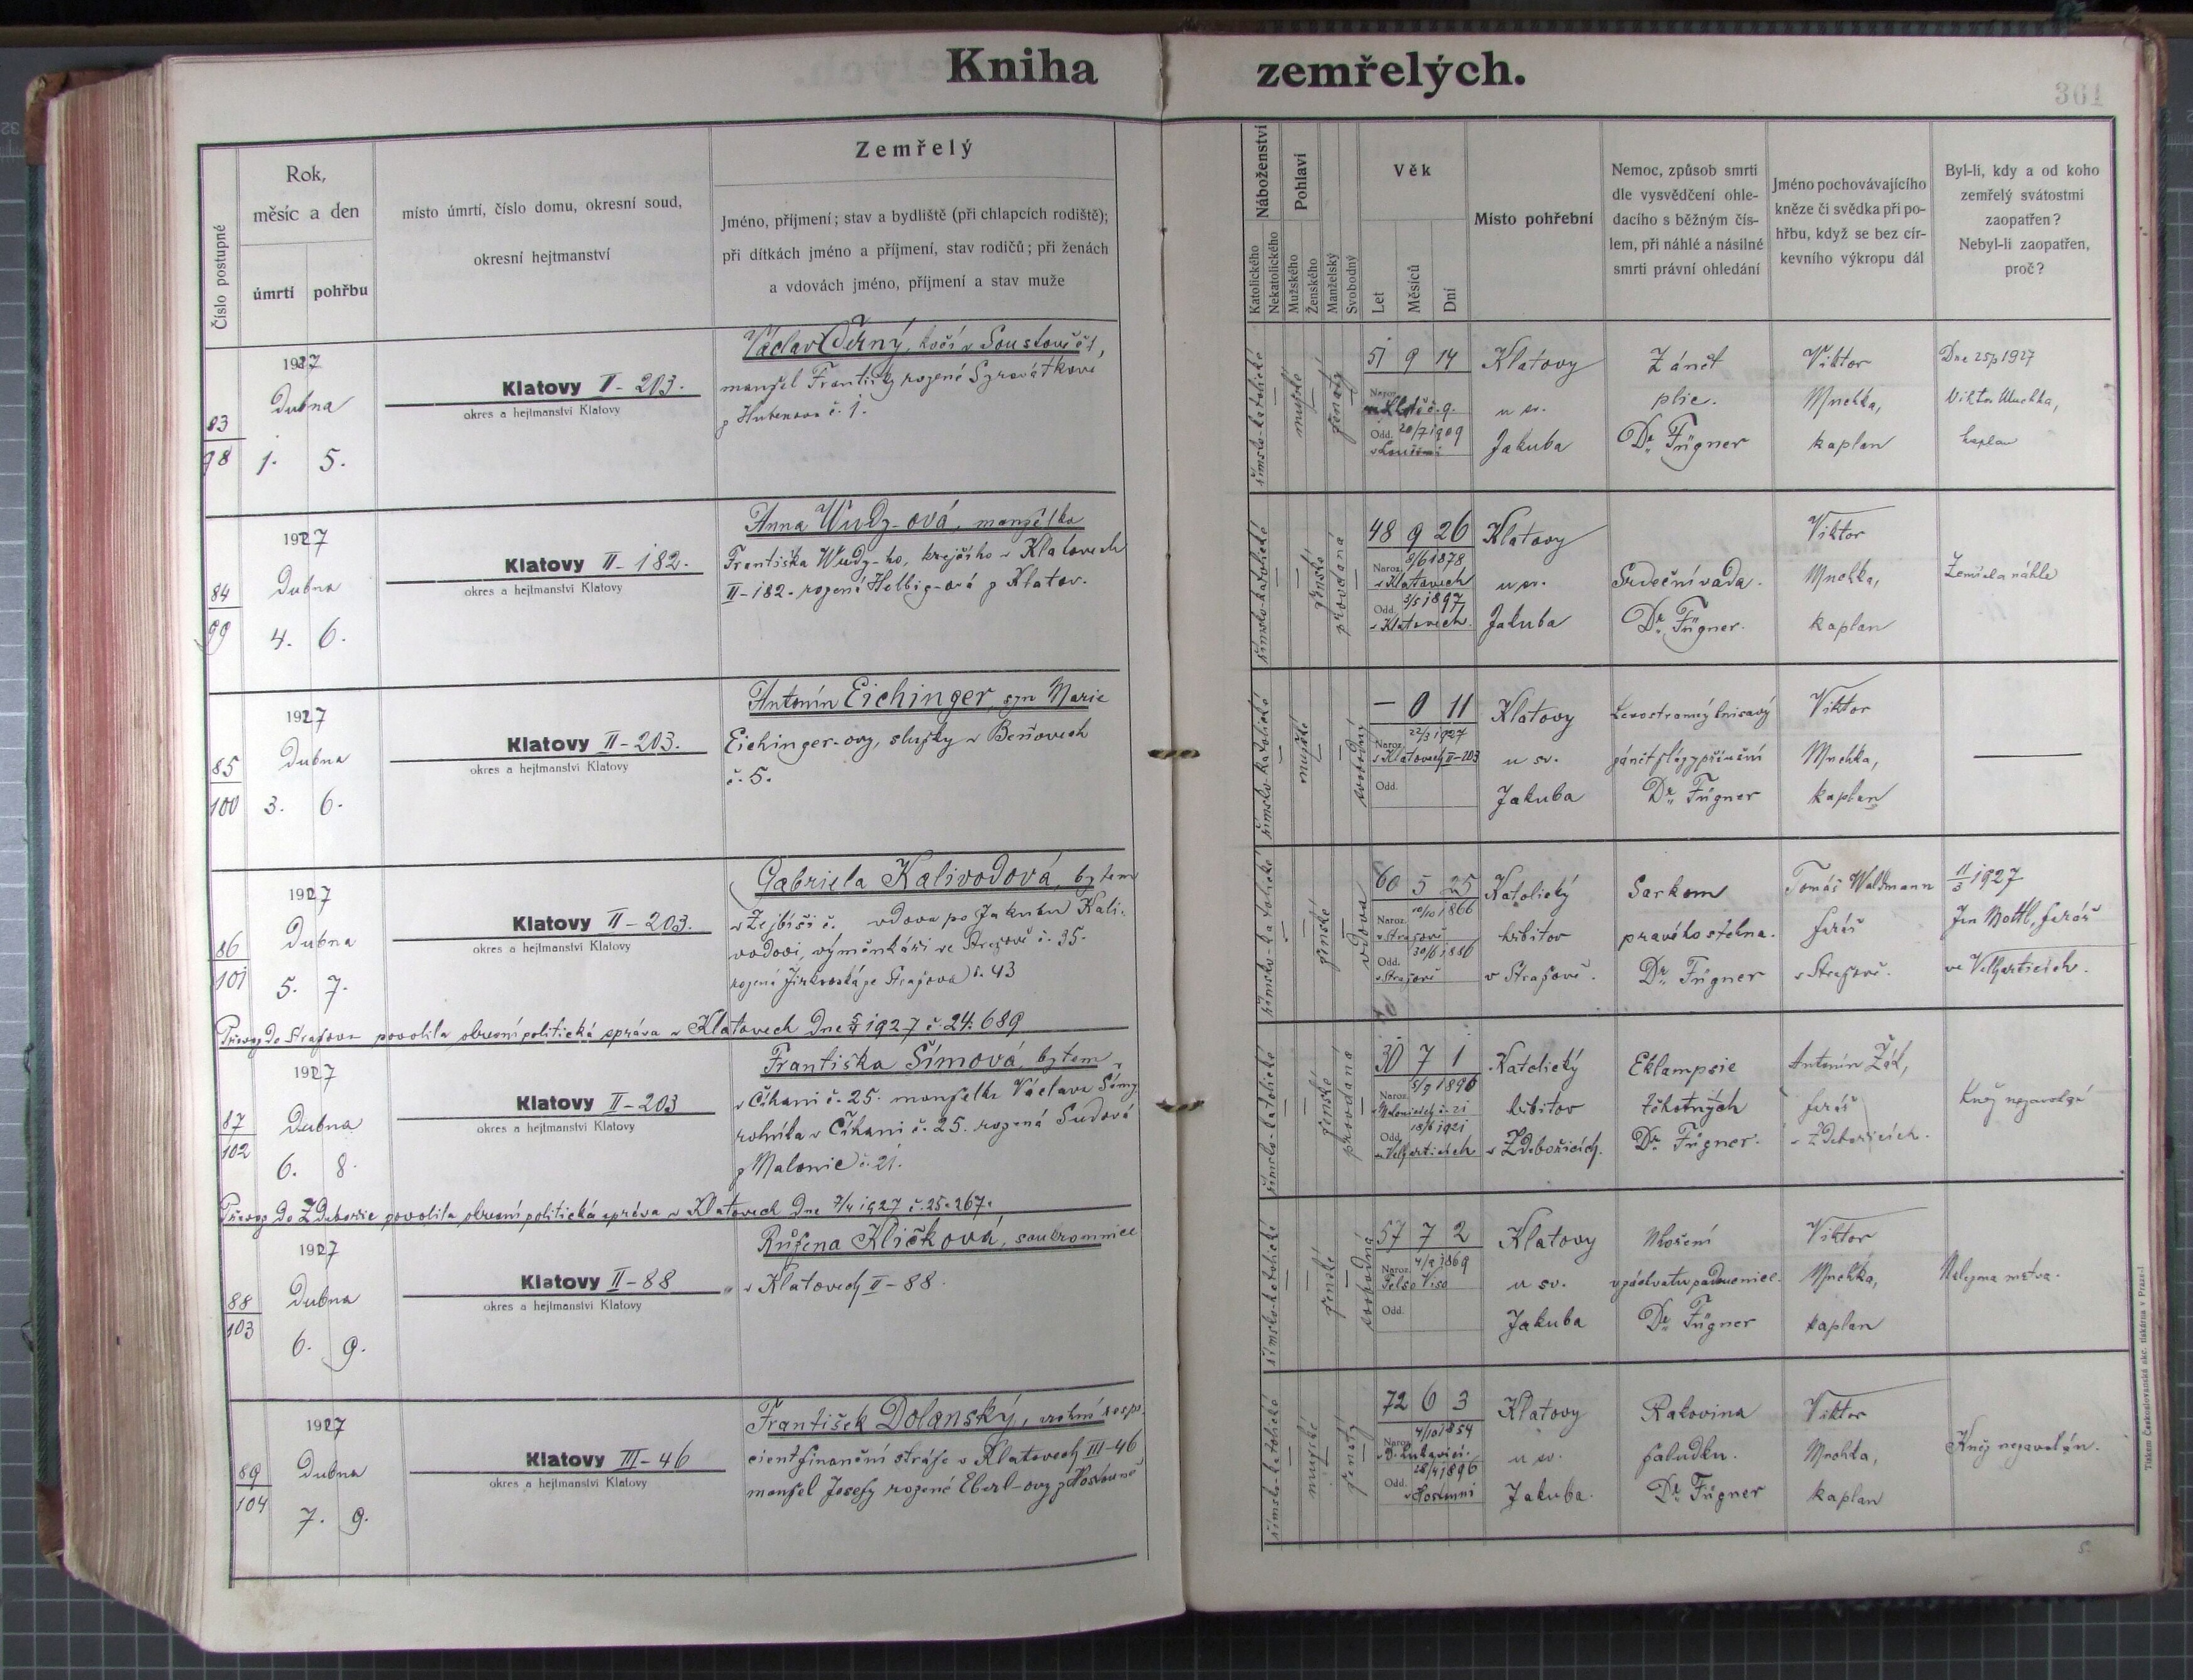 Kniha zemřelých.
361
Číslo postupné
Rok,
měsíc a den
úmrtí
pohřbu
místo úmrtí, číslo domu, okresní soud,
okresní hejtmanství
Zemřelý
Jméno, příjmení; stav a bydliště (při chlapcích rodiště);
při dítkách jméno a příjmení, stav rodičů; při ženách
a vdovách jméno, příjmení a stav muže
Náboženství
Katolického
Nekatolického
Pohlaví
Mužského
Ženského
Manželský
Svobodný
Věk
Let
Měsíců
Dní
Místo pohřební
Nemoc, způsob smrti
dle vysvědčení ohle-
dacího s běžným čís-
lem, při náhlé a násilné
smrti právní ohledání
Jméno pochovávajícího
kněze či svědka při po-
hřbu, když se bez cír-
kevního výkropu dál
Byl-li, kdy a od koho
zemřelý svátostmi
zaopatřen?
Nebyl-li zaopatřen,
proč?
83
98
1927
Dubna
1. 5.
Klatovy II-203.
okres a hejtmanství Klatovy
Václav Černý, kočí v
manžel Františky rozené Syrovátkové
z č. 1.
římsko-katolické
mužské
ženatý
51 9 14
Naroz.
Odd. 20/7 1909
Klatovy
u sv.
Jakuba
Zánět
plic.
Dr. Fügner
Viktor
Mnehka,
kaplan
Dne 1927
Viktor Mnehka,
kaplan
84
99
1927
Dubna
4. 6.
Klatovy II-182.
okres a hejtmanství Klatovy
Anna Wudz-ová, manželka
Františka Wudz-ho, krejčího v Klatovech
II-182. rozená Helbig-ová z Klatov.
římsko-katolické
ženské
provdaná
48 9 26
Naroz. 8/6 1878
v Klatovech
Odd. 3/5 1897
v Klatovech.
Klatovy
u sv.
Jakuba
Srdeční vada.
Dr. Fügner.
Viktor
Mnehka,
kaplan
Zemřela náhle
85
100
1927
Dubna
3. 6.
Klatovy II-203.
okres a hejtmanství Klatovy
Antonín Eichinger, syn Marie
Eichinger-ovy, služky v Beňovech
č. 5.
římsko-katolické
mužské
svobodný
— 0 11
Naroz. 22/3 1927
v Klatovech II-203
Odd.
Klatovy
u sv.
Jakuba
Levostranný hnisavý
zánět
Dr. Fügner
Viktor
Mnehka,
kaplan
86
101
1927
Dubna
5. 7.
Klatovy II-203.
okres a hejtmanství Klatovy
Gabriela Kalivodová, bytem
v č. vdova po Jakubu Kali-
vodovi, výměnkáři ve Strážově č. 35.
rozená ze Strážova č. 43
římsko-katolické
ženské
vdova
60 5 25
Naroz. 10/10 1866
v Strážově
Odd. 30/6 1886
v Strážově
Katolický
hřbitov
v Strážově.
Sarkom
pravého stehna.
Dr. Fügner
Tomáš Waldmann
farář
v Strážově.
11/3 1927
Jan Mottl, farář
ve Velharticích.
Převoz do Strážova povolila okresní politická správa v Klatovech dne 5/4 1927 č. 24.689
87
102
1927
Dubna
6. 8.
Klatovy II-203
okres a hejtmanství Klatovy
Františka Šímová, bytem
v Číhani č. 25. manželka Václava Šímy
rolníka v Číhani č. 25. rozená Sudová
z Malonic č. 21.
římsko-katolické
ženské
provdaná
30 7 1
Naroz. 5/9 1896
Malonicích č. 21
Odd. 18/6 1921
v Velharticích
Katolický
hřbitov
v Zdebořicích.
Eklampsie
těhotných
Dr. Fügner.
Antonín
farář
v Zdebořicích.
Kněz nezavolán
Převoz do Zdebořic povolila okresní politická správa v Klatovech dne 7/4 1927 č. 25.267.
88
103
1927
Dubna
6. 9.
Klatovy II-88
okres a hejtmanství Klatovy
Růžena Kličková, soukromnice
v Klatovech II-88.
římsko-katolické
ženské
svobodná
57 7 2
Naroz. 4/9 1869
Felso Viso
Odd.
Klatovy
u sv.
Jakuba
Dr. Fügner
Viktor
Mnehka,
kaplan
mrtva.
89
104
1927
Dubna
7. 9.
Klatovy III-46
okres a hejtmanství Klatovy
František Dolanský, vrchní resp-
cient finanční stráže v Klatovech III-46
manžel Josefy rozené Eberl-ovy z
římsko-katolické
mužské
ženatý
72 6 3
Naroz. 4/10 1854
Odd. 28/4 1896
Klatovy
u sv.
Jakuba.
Rakovina
žaludku.
Dr. Fügner
Viktor
Mnehka,
kaplan
Kněz nezavolán.
Tiskem Československá akc. tiskárna v Praze-I